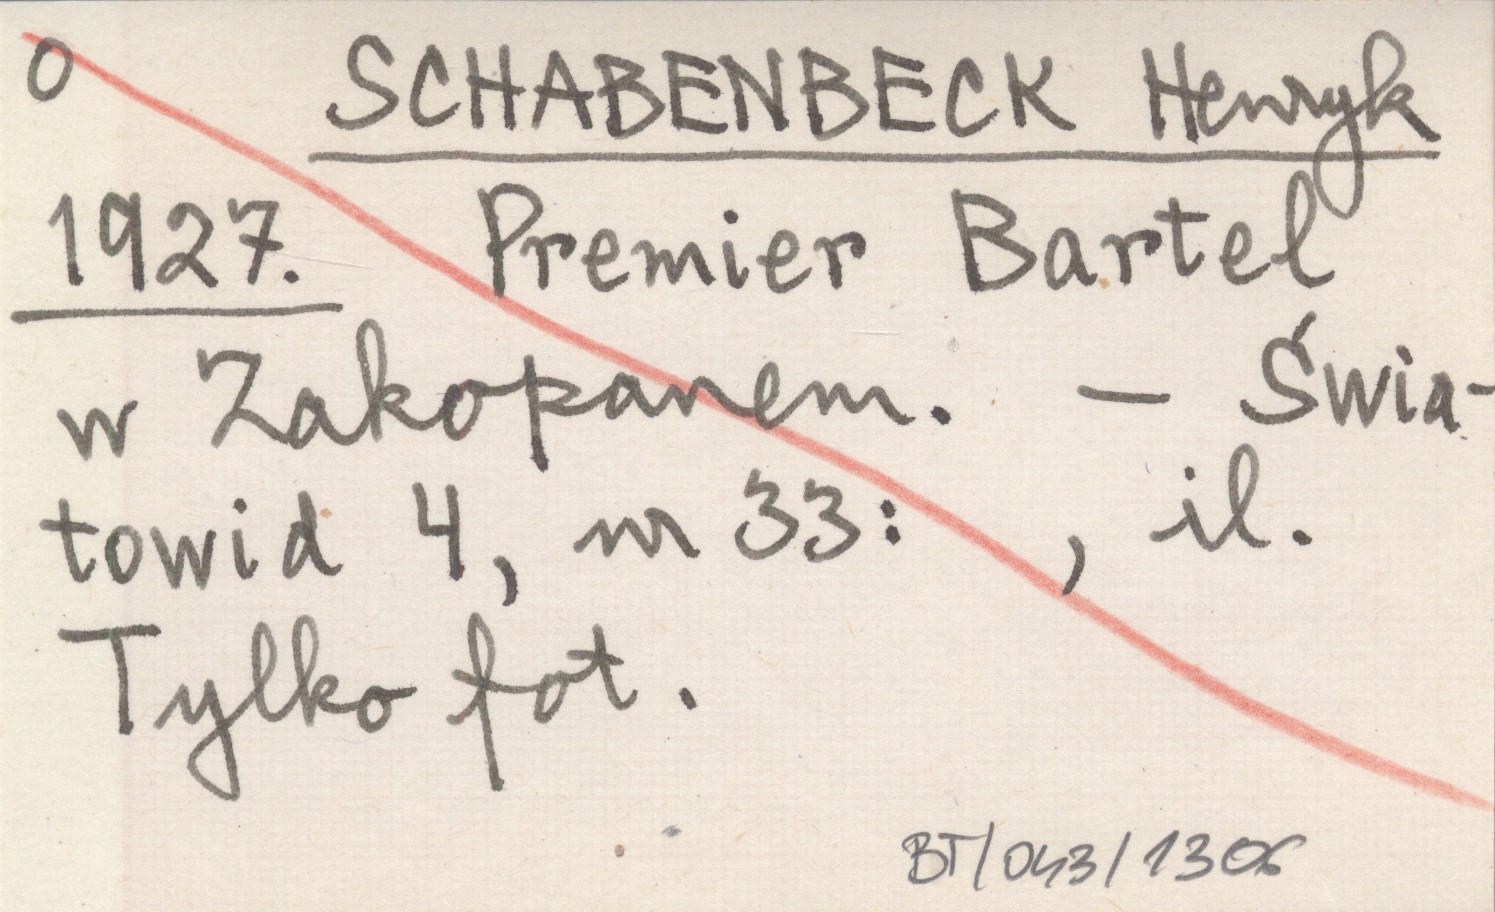 o SCHABENBECK Henryk
1927. Premier Bartel
w Zakopanem. – Świa-
towid 4, nr 33: , il.
Tylko fot.
BT/043/1306